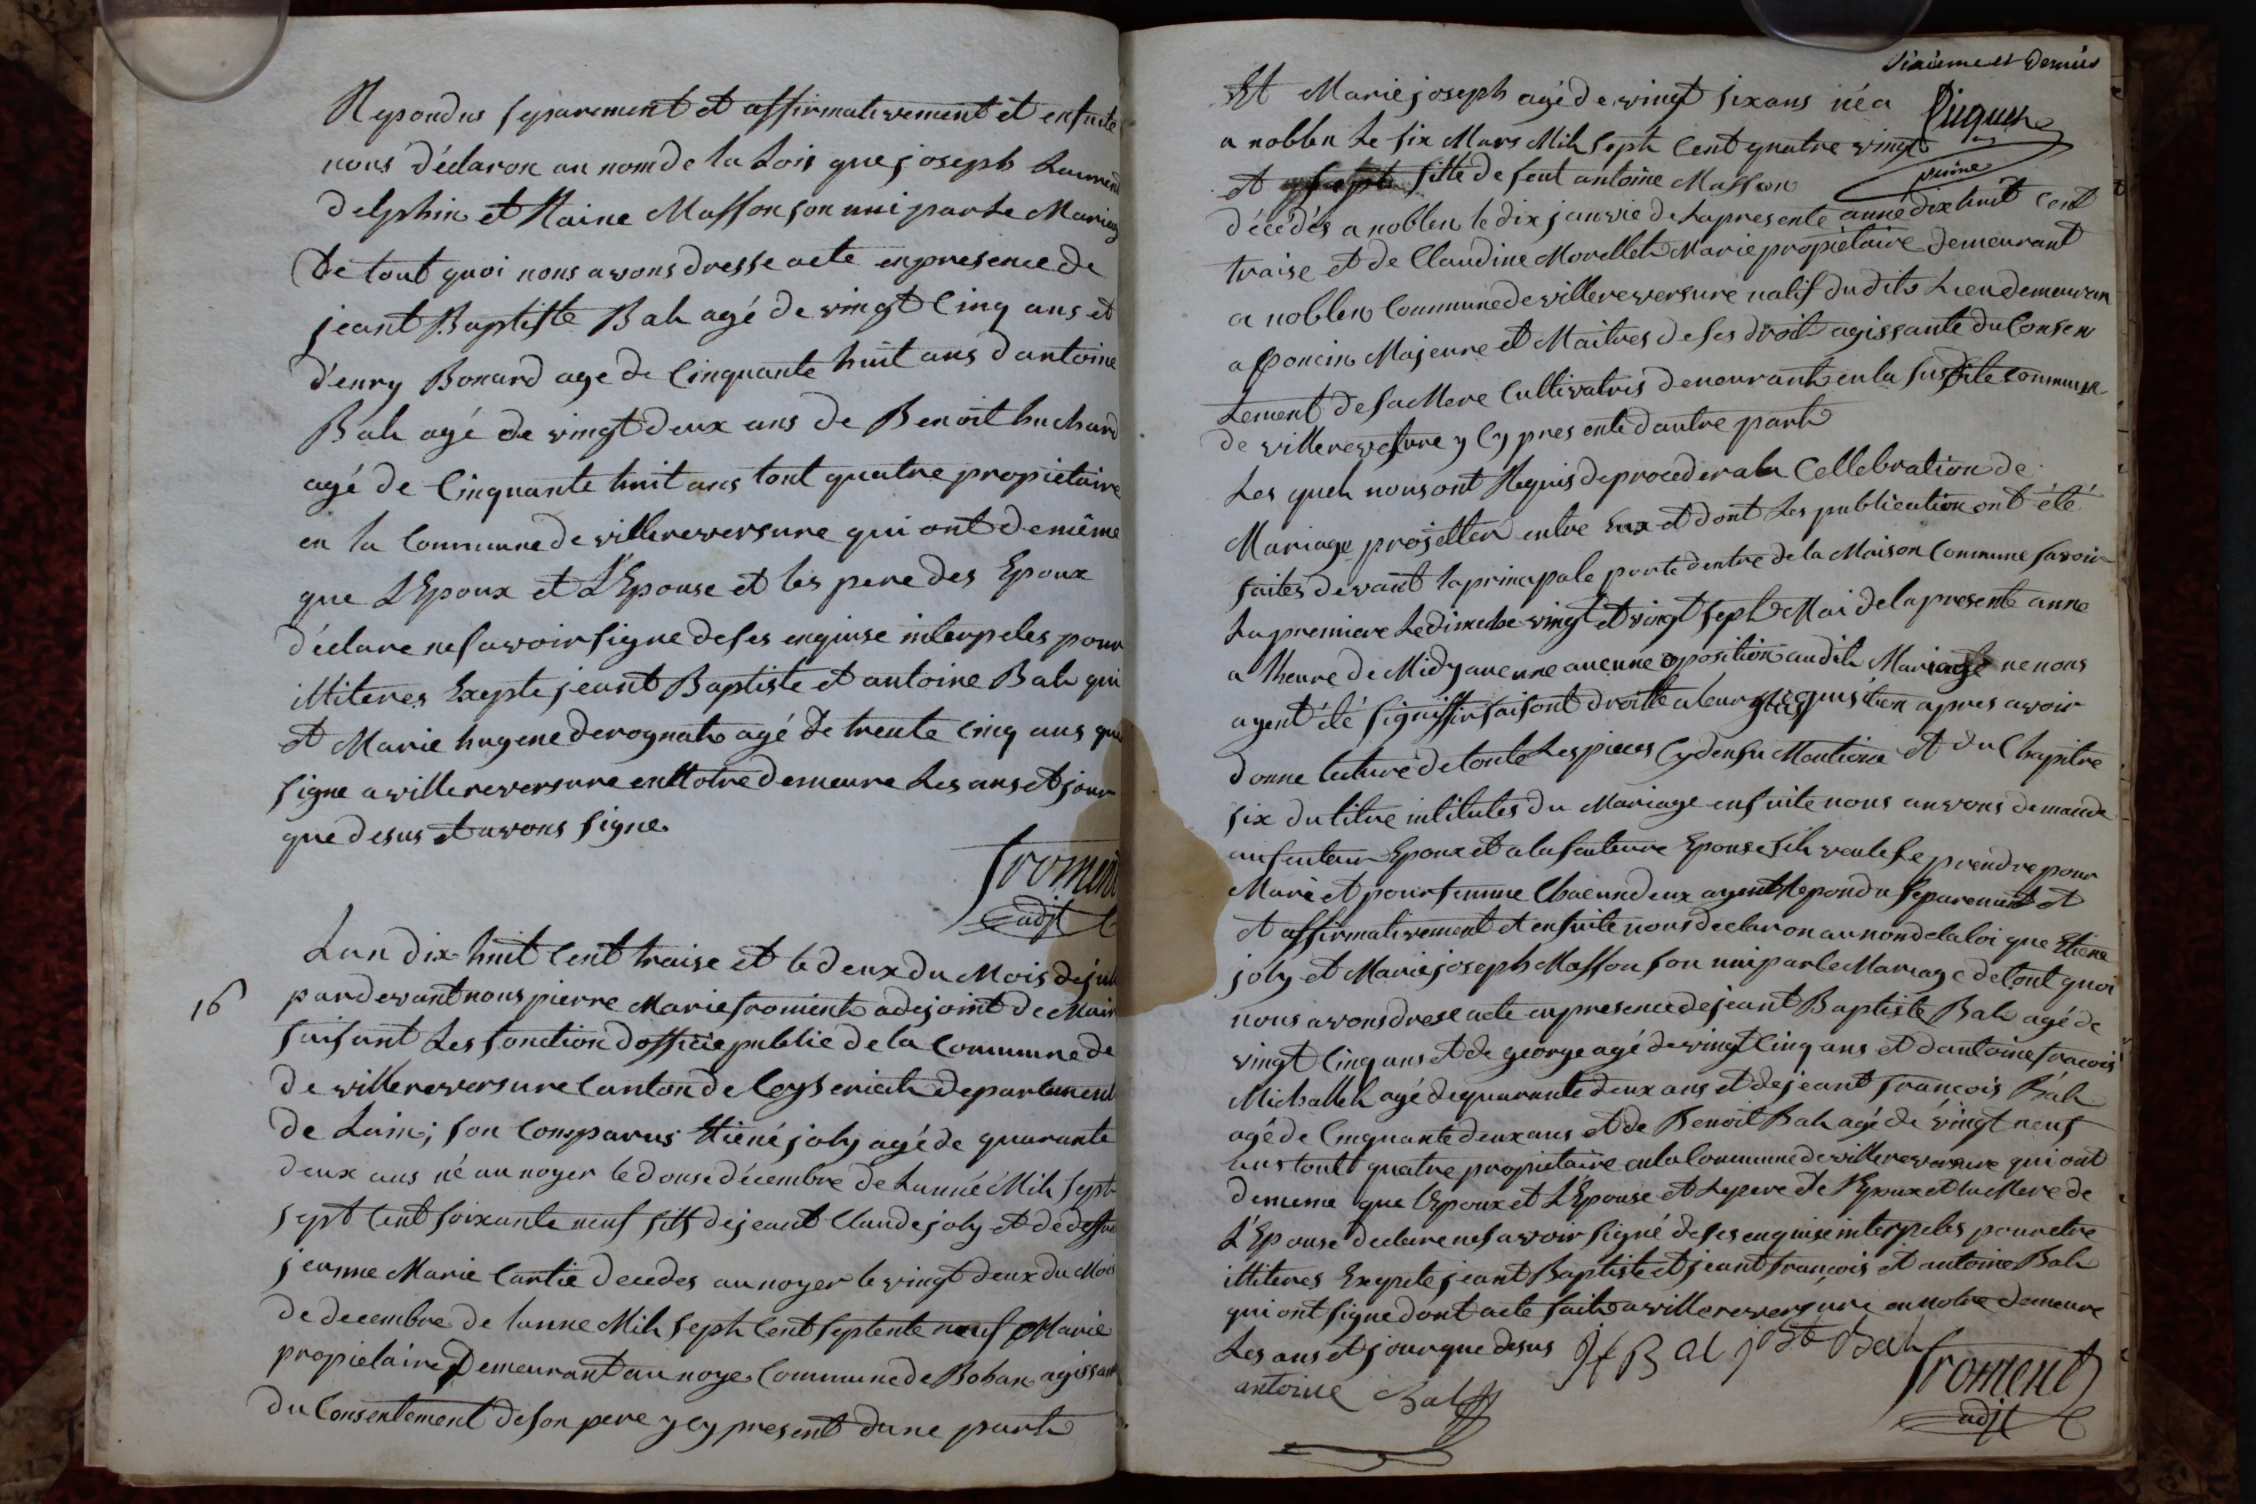 Repondus separement et affirmativement et ensuite
nous déclaron au nom de la Lois que joseph Laurend
Delphin et Raine Masson son uni par le Mariag
De tout quoi nous avons dresse acte en presence de
jeant Baptiste Bal agé de vingt Cinq ans et
d'enry Bonard age de Cinquante huit ans d antoine
Bal agé de vingt deux ans de Benoit huchard
agé de Cinquante huit ans tout quatre propiétaire
en la Commune de villereversure qui ont de même
que L'Epoux et L'Epouse et les pere des Epoux
déclare ne savoir signe de ses enquise interpeles pour
illiteres Exepte jeant Baptiste et antoine Bal qui
et Marie hugene derognat agé de trente cinq ans qui
signe a villereversure en Notre demeure Les ans et jour
que desus et avons signe.
froment
adjt
16
Lan dix-huit Cent traise et le deux du Mois de juil
par devant nous pierre Marie froment adejoint de Mair
faisant Les fonction d officie public de la Commune de
de villereversure Canton de Ceyseriat departement
de Lain; son Comparus Etiené joly agé de quarante
deux ans né au noyer le douse décembre de Lanné Mil sept
sept Cent soixante neuf fils de jeant Claude joly et de
jeanne Marie Cartie decedes au noyer le vingt deux du Mois
de decembre de lanne Mil sept Cent septente neuf Marie
propietaire Demeurant au noye Commune de Bohan agissant
du Consentement de son pere y cy present dune part
sixieme et dernier
Piquet
Et Marie joseph agé de vingt six ans né a
a noblen Le six Mars Mil sept Cent quatre vingt
et sept fille de feut antoine Masson
décédés a noblen le dix janvie de La presente anné dix huit Cent
traise et de Claudine Morellet Marie propietaire demeurant
a noblen Commune de villereversure natif dudit Lieu demeuran
a poncin Majeure et Maitres de ses droit agissante du Consen
tement de sa Mere Cultivatris demeurant en la susdite commune
de villereversure y Cy presente dautre part
Les quel nous ont Requis de proceder a la Cellebration de
Mariage projetter entre Eux et dont Les publication ont été
faites devant la principale porte dentre de la Maison Commune savoir
La premiere Le dimenche vingt et vingt sept Mai de la presente anne
a lheure de Midy aucune aucune oposition audit Mariage ne nous
ayent été signiffir faisont droitte a leur Requisition apres avoir
donne lecture de toute Les pieces Cy densu Montiones et du Chapitre
six du titre intitules du Mariage ensuite nous auvons demande
au feuteur Epoux et a la feuteure Epouse sil veule se prendre pour
Marie et pour femme Chacun deux ayent Repondu separement et
et affirmativement et ensuite nous declaron au non de la loi que Etiene
joly et Marie joseph Masson son uni par le Mariage de tout quoi
nous avons drese acte en presence de jeant Baptiste Bal agé de
vingt Cinq ans et de george agé de vingt Cinq ans et d antoine francois
Michallet agé de quarante deux ans et de jeant francois Bal
agé de Cinquante deux ans et de Benoit Bal agé de vingt neuf
ans toutt quatre propietaire en la Commune de villereversure qui ont
de meme que l'Epoux et L'Epouse et Le pere de l'Epoux et la Mere de
L'Epouse declare ne savoir signé de ses enquise interpeles pour etre
illiteres Exepte jeant Baptiste et jeant francois et antoine Bal
qui ont signe dont acte fait a villereversure en notre demeure
Les ans et jour que desus jf Bal j bte Bal
froment
antoine Bal
adjt